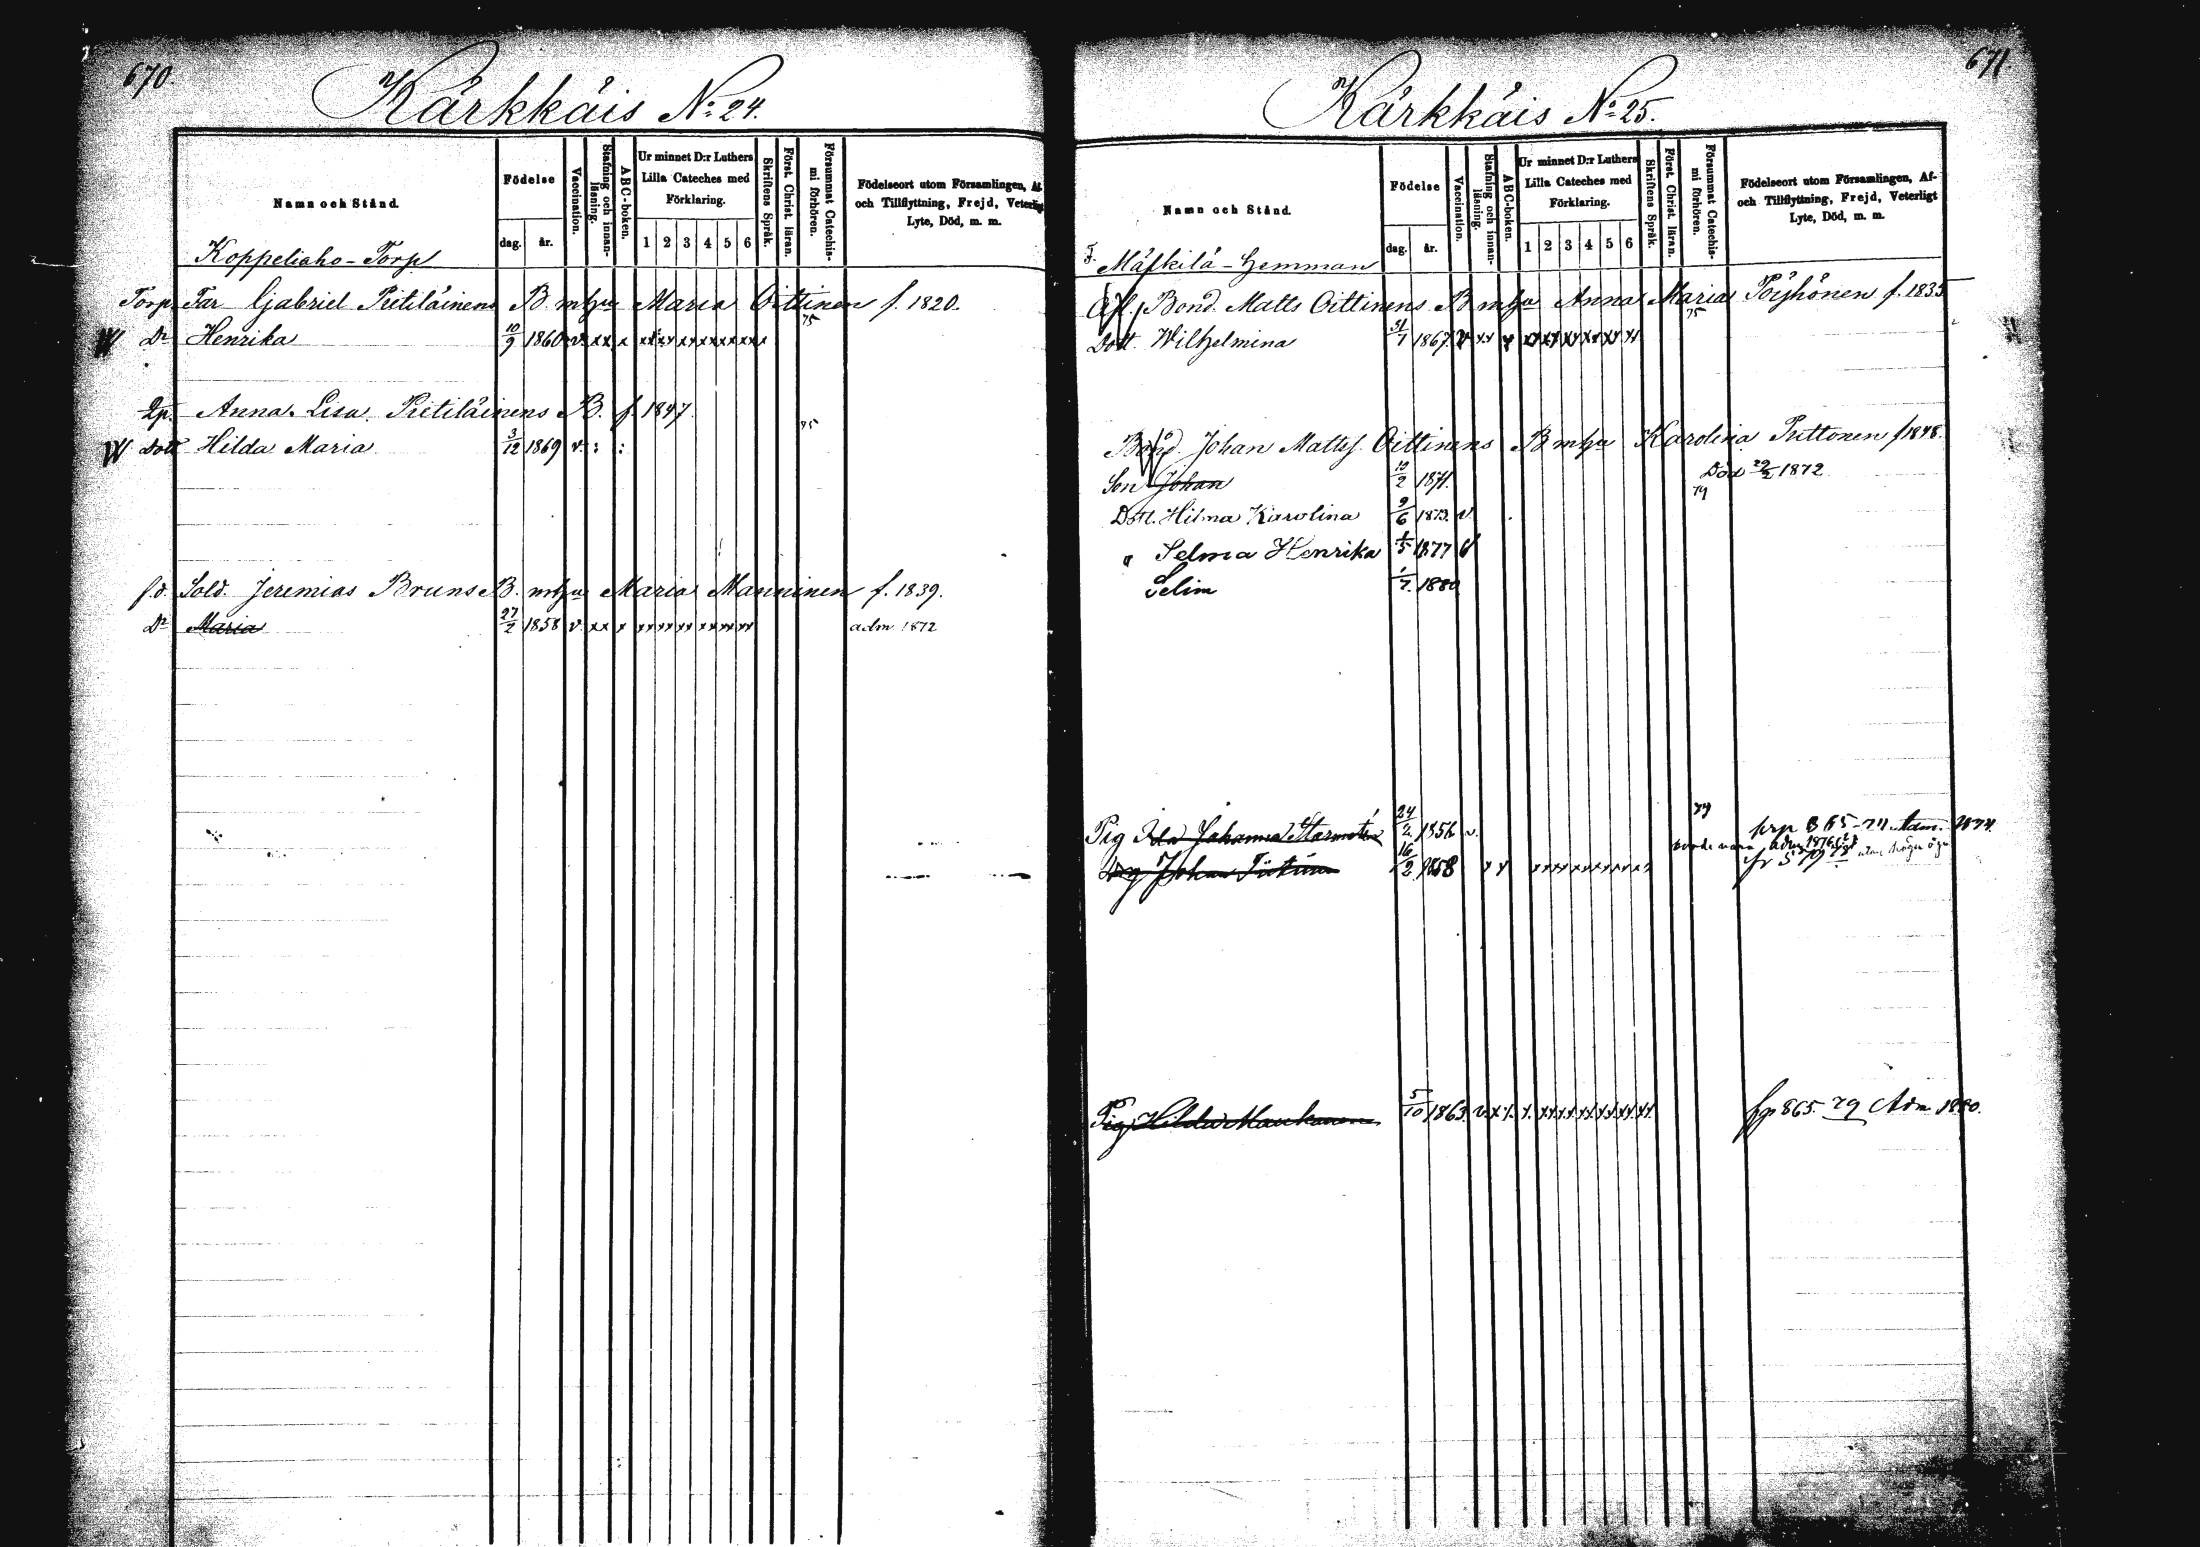 670.
Kärkkäis No: 24.
Namn och Stånd.
Födelse
dag. år.
Vaccination.
Stafning och innan-läsning.
ABC-boken.
Ur minnet D:r Luthers
Lilla Cateches med
Förklaring.
1 2 3 4 5 6
Skriftens Språk.
Först. Christ. läran.
Försummat Catechis-mi förhören.
Födelseort utom Församlingen, Af-
och Tillflyttning, Frejd, Veterligt
Lyte, Död, m. m.
Koppeliaho-Torp
Torp. Far Gabriel Pietiläinens B. mhu Maria Oittinen f. 1820.
75
Dr Henrika 10/9 1860 v. xx x xx xx xx xx xx xx x
Anna Lisa Pietiläinens B. f. 1847.
75
Dott Hilda Maria 3/12 1869 v. : :
f.d. Sold. Jeremias Bruns B. mhu Maria Manninen f. 1839.
Dr Maria 27/2 1858 v. xx x xx xx xx xx xx xx adm. 1872
671.
Kärkkäis No: 25.
Namn och Stånd.
Födelse
dag. år.
Vaccination.
Stafning och innan-läsning.
ABC-boken.
Ur minnet D:r Luthers
Lilla Cateches med
Förklaring.
1 2 3 4 5 6
Skriftens Språk.
Först. Christ. läran.
Försummat Catechis-mi förhören.
Födelseort utom Församlingen, Af-
och Tillflyttning, Frejd, Veterligt
Lyte, Död, m. m.
Mäskilä-Hemman
Afl. Bond. Matts Oittinens B mhu Anna Maria Pöyhönen f. 1835
75
Dott Wilhelmina 31/7 1867. v xx x xx xx xx xx xx xx
Bond. Johan Mattss. Oittinens B mhu Karolina Puttonen f 1848.
Son Johan 10/2 1871. Död 29/2 1872
79
Dott. Hilma Karolina 9/6 1873. v.
" Selma Henrika 4/5 1877 v
Selim 1/7. 1880
79
Pig Ida Johanna 24/2. 1856 v. 1874.
Johan 16/2. 1858 x x xx xx xx xx xx xx
Pig Hilda 5/10 1863. v. x x. x. xx xx xx xx xx xx. frp 865. 79 Adm 1880.